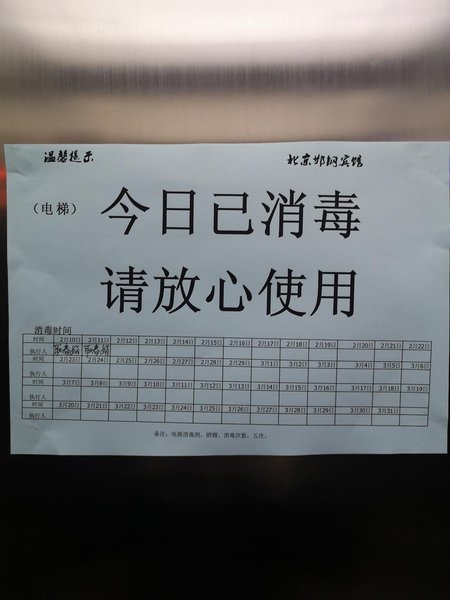 温馨提示 北京邯钢宾馆
（电梯） 今日已消毒
请放心使用
消毒时间
时间 2月10日 2月11日 2月12日 2月13日 2月14日 2月15日 2月16日 2月17日 2月18日 2月19日 2月20日 2月21日 2月22日
执行人
时间 2月23日 2月24日 2月25日 2月26日 2月27日 2月28日 2月29日 3月1日 3月2日 3月3日 3月4日 3月5日 3月6日
执行人
时间 3月7日 3月8日 3月9日 3月10日 3月11日 3月12日 3月13日 3月14日 3月15日 3月16日 3月17日 3月18日 3月19日
执行人
时间 3月20日 3月21日 3月22日 3月23日 3月24日 3月25日 3月26日 3月27日 3月28日 3月29日 3月30日 3月31日
执行人
备注：电梯消毒剂，酒精。消毒次数，五次。